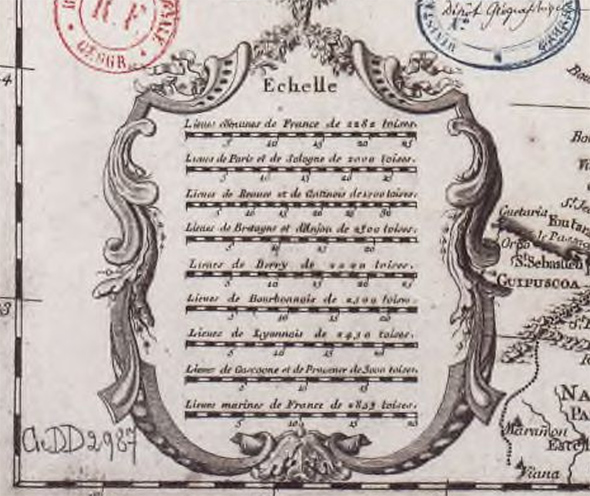 R. F.
GEOGR.
Dépôt Géographique
N.º
4
Echelle
Lieues comunes de France de 2282 toises.
5 10 15 20 25
Lieues de Paris et de Sologne de 2000 toises.
5 10 15 20 25
Lieues de Beauce et de Gatinois de 1700 toises.
5 10 15 20 25 30
Lieues de Bretagne et d'Anjou de 2300 toises.
5 10 15 20
Lieues de Berry de toises.
5 10 15 20 25
Lieues de Bourbonnois de toises.
5 10 15 20
Lieues de Lyonnois de 2450 toises.
5 10 15 20
Lieues de Gascogne et de Provence de 3000 toises.
5 10 15
Lieues marines de France de 2853 toises.
5 10 15 20
Guetaria
Orio
le Passage
S.t Sebastien
GUIPUSCOA
3
NA
PA
Marañon
Estel
Viana
Ge DD 2987